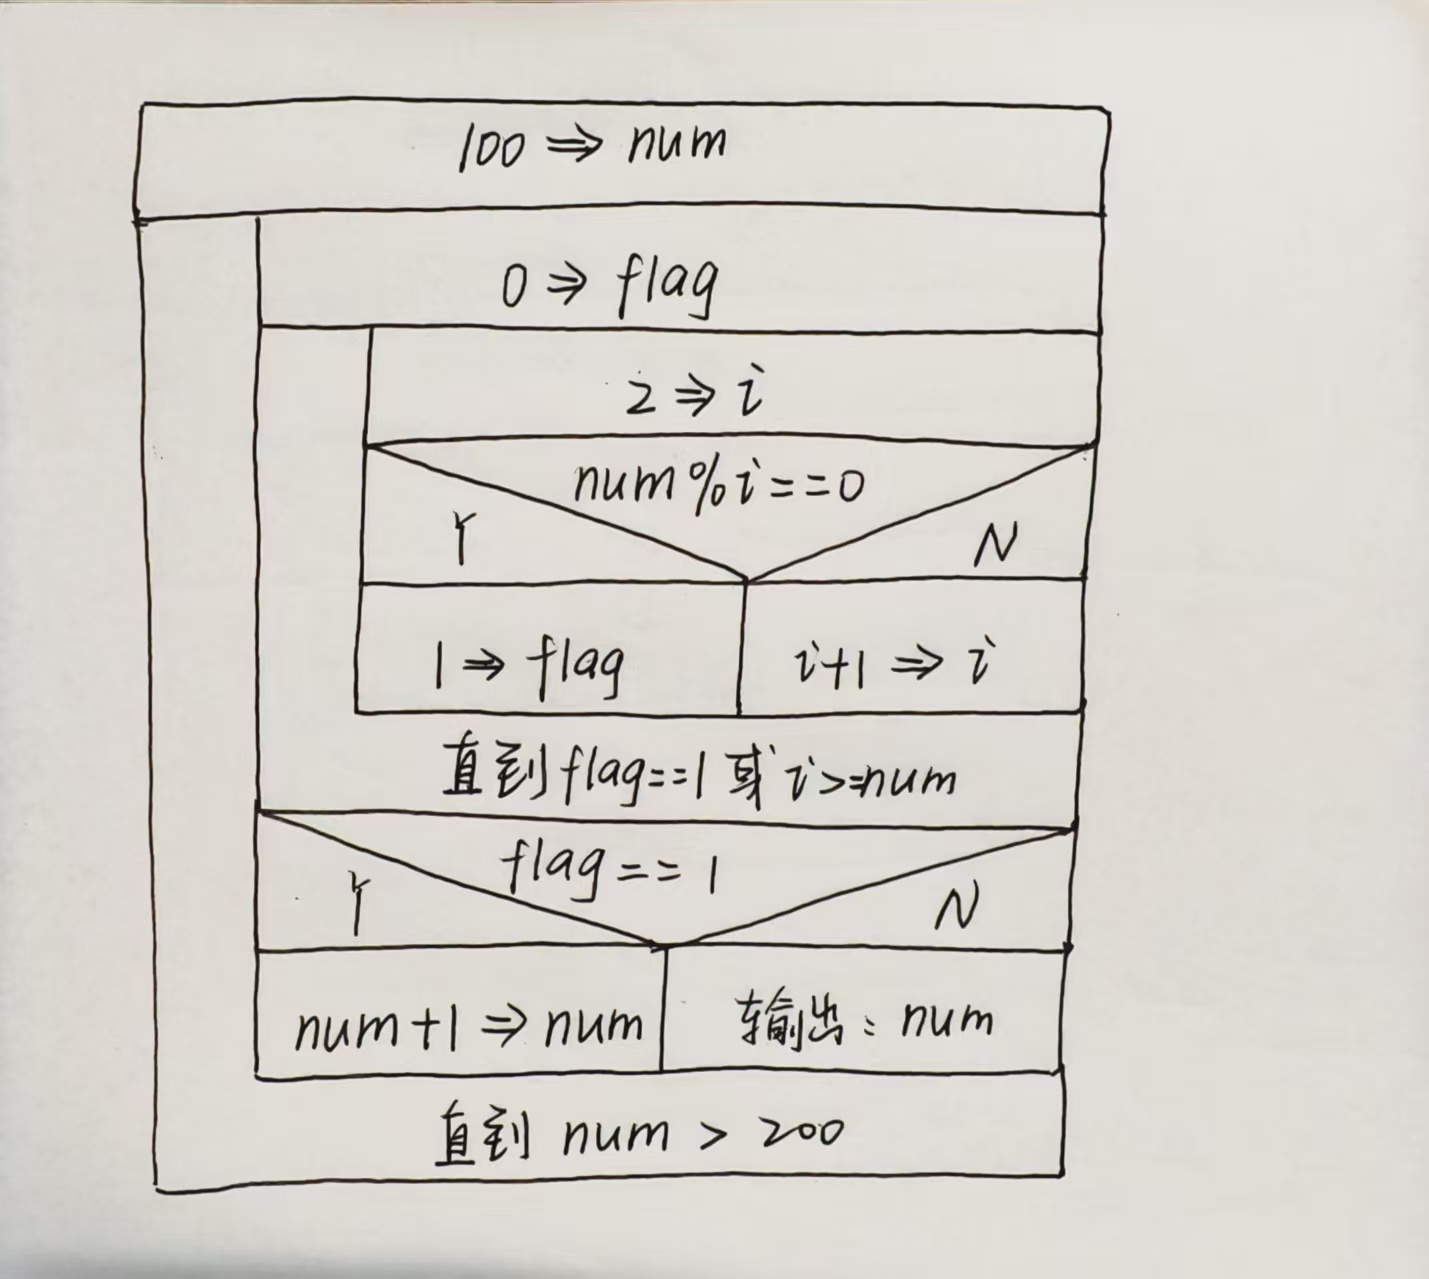 100 ⇒ num
0 ⇒ flag
2 ⇒ i
num%i==0
Y N
1 ⇒ flag i+1 ⇒ i
直到flag==1或i>=num
flag==1
Y N
num+1 ⇒ num 输出:num
直到 num > 200